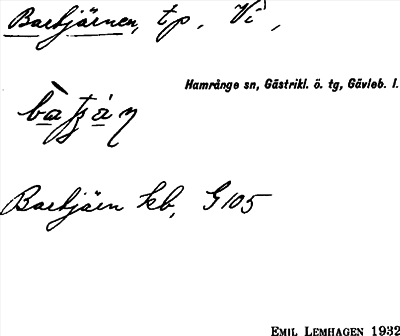 Bartjärnen, tp. Vi,
Hamrånge sn, Gästrikl. ö. tg, Gävleb. l.
Bartjärn kb, G105
EMIL LEMHAGEN 1932